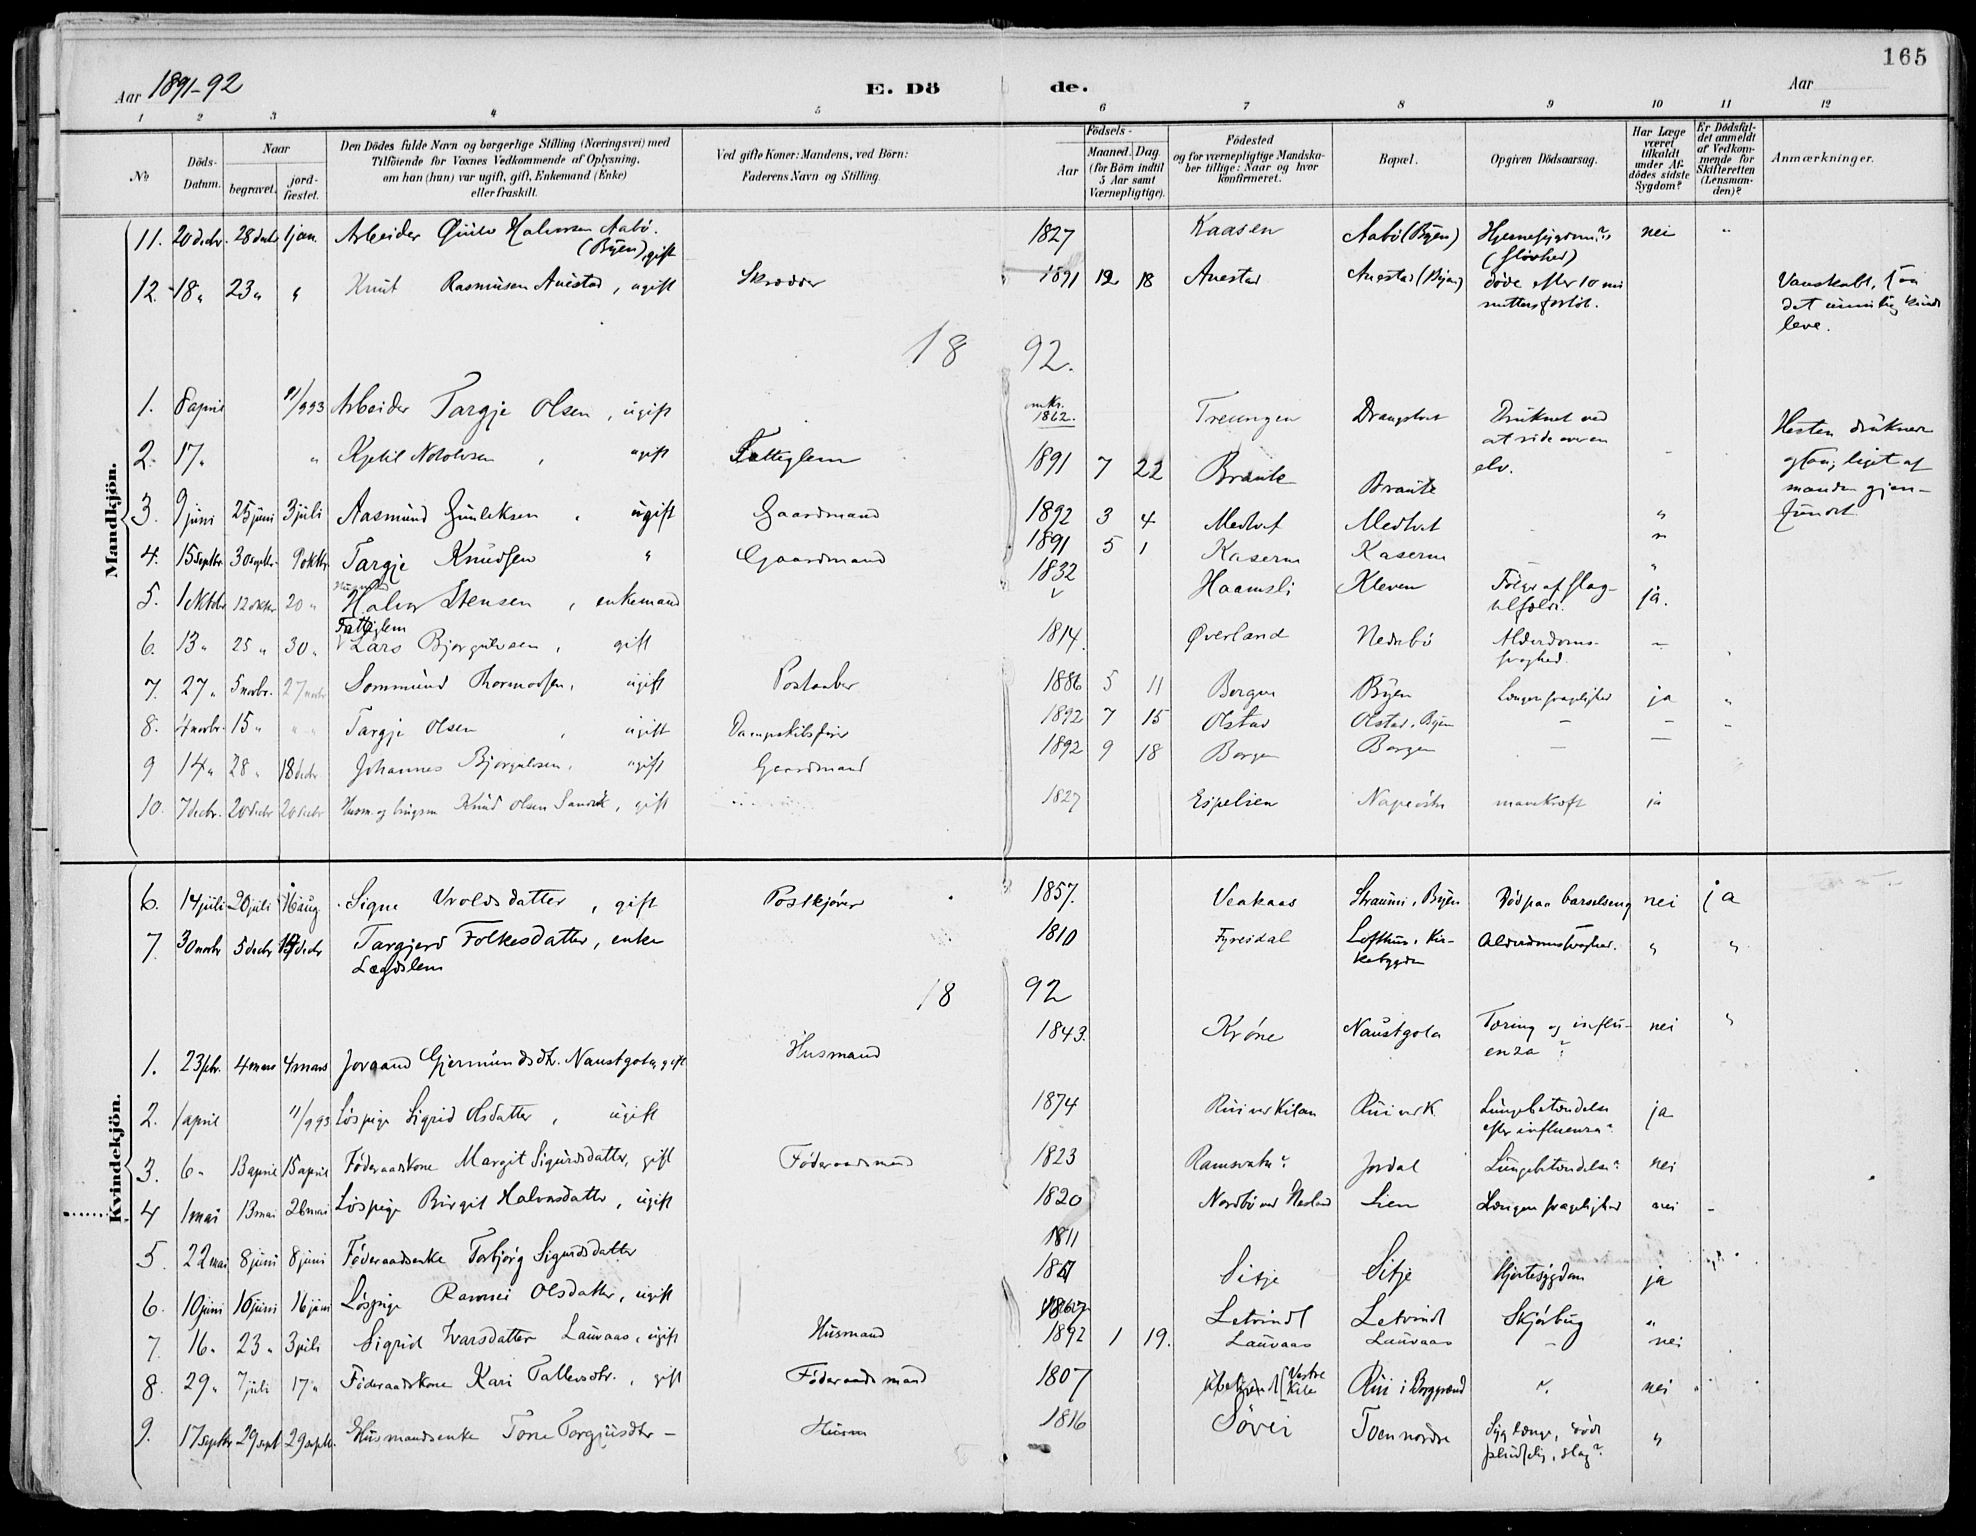 165
Aar 1891-92
E. Dö de.
Aar
1 2 3 4 5 6 7 8 9 10 11 12
No.
Döds-Datum.
Naar
begravet.
jordfæstet.
Den Dödes fulde Navn og borgerlige Stilling (Næringsvei) med
Tilföiende for Voxnes Vedkommende af Oplysning,
om han (hun) var ugift, gift, Enkemand (Enke)
eller fraskilt.
Ved gifte Koner: Mandens, ved Börn:
Faderens Navn og Stilling.
Födsels-
Aar
Maaned. Dag
(for Börn indtil
5 Aar samt
Værnepligtige).
Födested
og for værnepligtige Mandskaber tillige: Naar og hvor
konfirmeret.
Bopæl.
Opgiven Dödsaarsag.
Har Læge
været
tilkaldt
under Afdödes sidste
Sygdom?
Er Dödsfaldet anmeldt
af Vedkommende for
Skifteretten
(Lensmanden)?
Anmærkninger.
Mandkjön.
11. 20 decbr. 28 decbr 1 jan. Arbeider Halvorsen Aabö. (Byen), gift 1827 Kaasen Aabö (Byen) (slövhed) nei "
12. 18 " 23 " " Knut Rasmusen Auestad, ugift Skrædder 1891 12 18 Auestad Auestad (Byen) döde efter 10 minutters forlöb. leve.
18 92.
1. 8 april 11/9 93 Arbeider Targje Olsen, ugift omkr. 1862. Treungen Drangstvet Druknet ved at ride over en elv. Hesten druknede og liget af manden gjenfundet
2. 17 " " Kjetil Notolvsen, ugift Fatteglem 1891 7 22 Braute Braute
3. 9 juni 25 juni 3 juli Aasmund Gunleksen, ugift Gaardmand 1892 3 4 Medtvet Medtvet "
4. 15 septbr. 30 septbr. 9 oktbr Targje Knudsen " Gaardmand 1891 5 1 Kaserm Kaserm "
5. 1 oktobr 12 oktbr 20 " Husmand Halvor Stensen, enkemand 1832 Haamsli Kleven Fölge af slagtilfælde. ja.
6. 13 " 25 " 30 " Fattiglem Lars Bjorgulvsen, gift 1814. Överland Nedrebö Alderdomssvaghed. —
7. 27 " 5 novbr. 27 novbr Sommund Thormodsen, ugift Postaaber 1886 5 11 Borgen Byen ja "
8. 4 novbr. 15 " " " Targje Olsen, ugift Dampskibsförer 1892 7 15 Olstad Olstad, Byen — —
9 14 " 28 " 18 decbr Johannes Bjorgulvsen, ugift Gaardmand 1892 9 18 Borgen Borgen — —
10. 7 decbr. 20 decbr 20 decbr Knud Olsen Sandvik, gift 1827 Espelien mavekræft ja
Kvindekjön.
6. 14 juli 20 juli 16 aug. Signe Uvoldsdatter, gift Postkjörer 1857. Veakaas Straumi, Byen Död paa barselseng nei ja
7. 30 novbr 5 decbr 19 decbr Targjerd Folkesdatter, enke Lægdslem 1810 Fyresdal Lofthus, Kirkebygden Alderdomssvaghed. " "
18 92
1. 23 febr. 4 mars 4 mars Jorgand Gjermundsdtr. Naustgota, gift Husmand 1843. Kröne Naustgota Tæring og influenza? nei "
2. 1 april 11/9 93 Löspige Sigrid Olsdatter, ugift 1874 Rui ved Kilan Rui ved K. Lungebetændelse efter influenza. ja
3. 6 " 13 april 15 april Föderaadskone Margit Sigurdsdatter, gift Föderaadsmand 1823 Jordal Lungebetændelse. nei
4 1 mai 13 mai 26 mai Löspige Birgit Halvorsdatter, ugift 1820 Nordbö ved Lien nei —
5. 22 mai 8 juni 8 juni Föderaadsenke Torbjörg Sigurdsdatter 1811 Sitje Sitje Hjertesygdom ja
6. 10 juni 16 juni 16 juni Löspige Olsdatter, ugift Letvindt Letvindt Skjörbug "
7. 16 " 23 " 3 juli Sigrid Ivarsdatter Lauvaas, ugift Husmand 1892 1 19. Lauvaas Lauvaas — nei
8. 29 " 7 juli 17 " Föderaadskone Kari Tallevsdtr., gift Föderaadsmand 1807 Vestre Kile Rui i nei
9. 17 septbr 29 sept 29 septbr. Husmandsenke Tone Torgjusdtr — Husm 1816 Sövei Toen nordre Syg længe, döde pludselig, slag? "